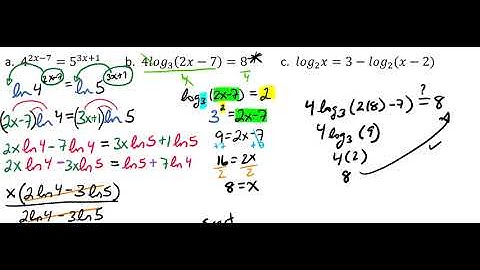 a. 4^{2x-7} = 5^{3x+1}
ln 4^{2x-7} = ln 5^{3x+1}
(2x-7)ln4 = (3x+1)ln5
2xln4 - 7ln4 = 3xln5 + 1ln5
2xln4 - 3xln5 = ln5 + 7ln4
x(2ln4 - 3ln5)
2ln4 - 3ln5
b. 4log₃(2x − 7) = 8
4 4
log₃(2x-7) = 2
3² = 2x-7
9 = 2x-7
16 = 2x
2 2
8 = x
c. log₂x = 3 − log₂(x − 2)
4log₃(2(8)-7) ?= 8
4log₃(9)
4(2)
8 ✓